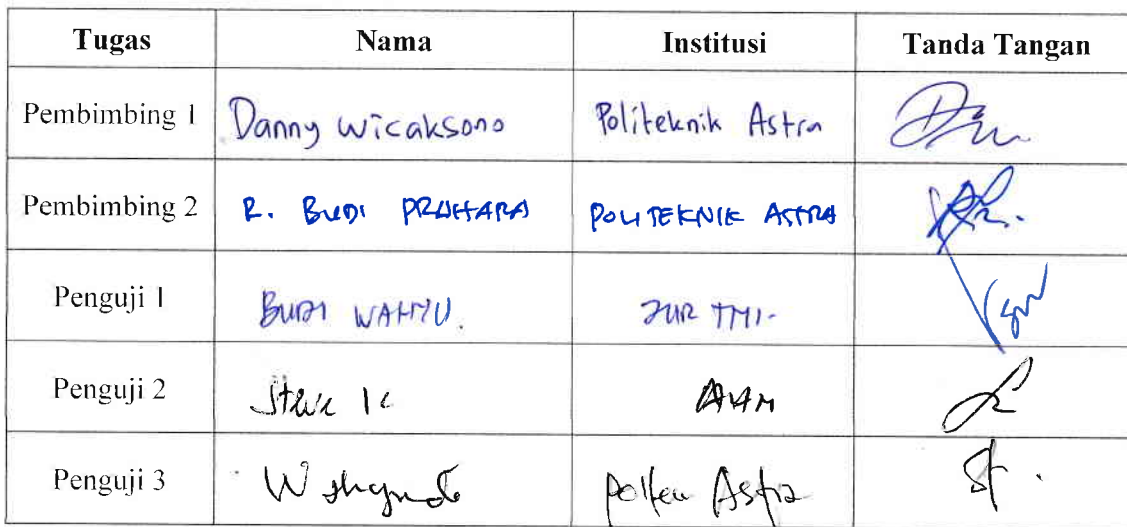 Tugas Nama Institusi Tanda Tangan
Pembimbing 1 Danny Wicaksono Politeknik Astra
Pembimbing 2 R. BUDI PRAHARA POLITEKNIK ASTRA
Penguji 1 BUDI WAHYU. JUR TMI-
Penguji 2 Steve
Penguji 3 Astra